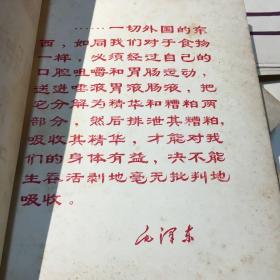 ……一切外国的东
西，如同我们对于食物
一样，必须经过自己的
口腔咀嚼和胃肠运动，
送进唾液胃液肠液，把
它分解为精华和糟粕两
部分，然后排泄其糟粕，
吸收其精华，才能对我
们的身体有益，决不能
生吞活剥地毫无批判地
吸收。
毛泽东